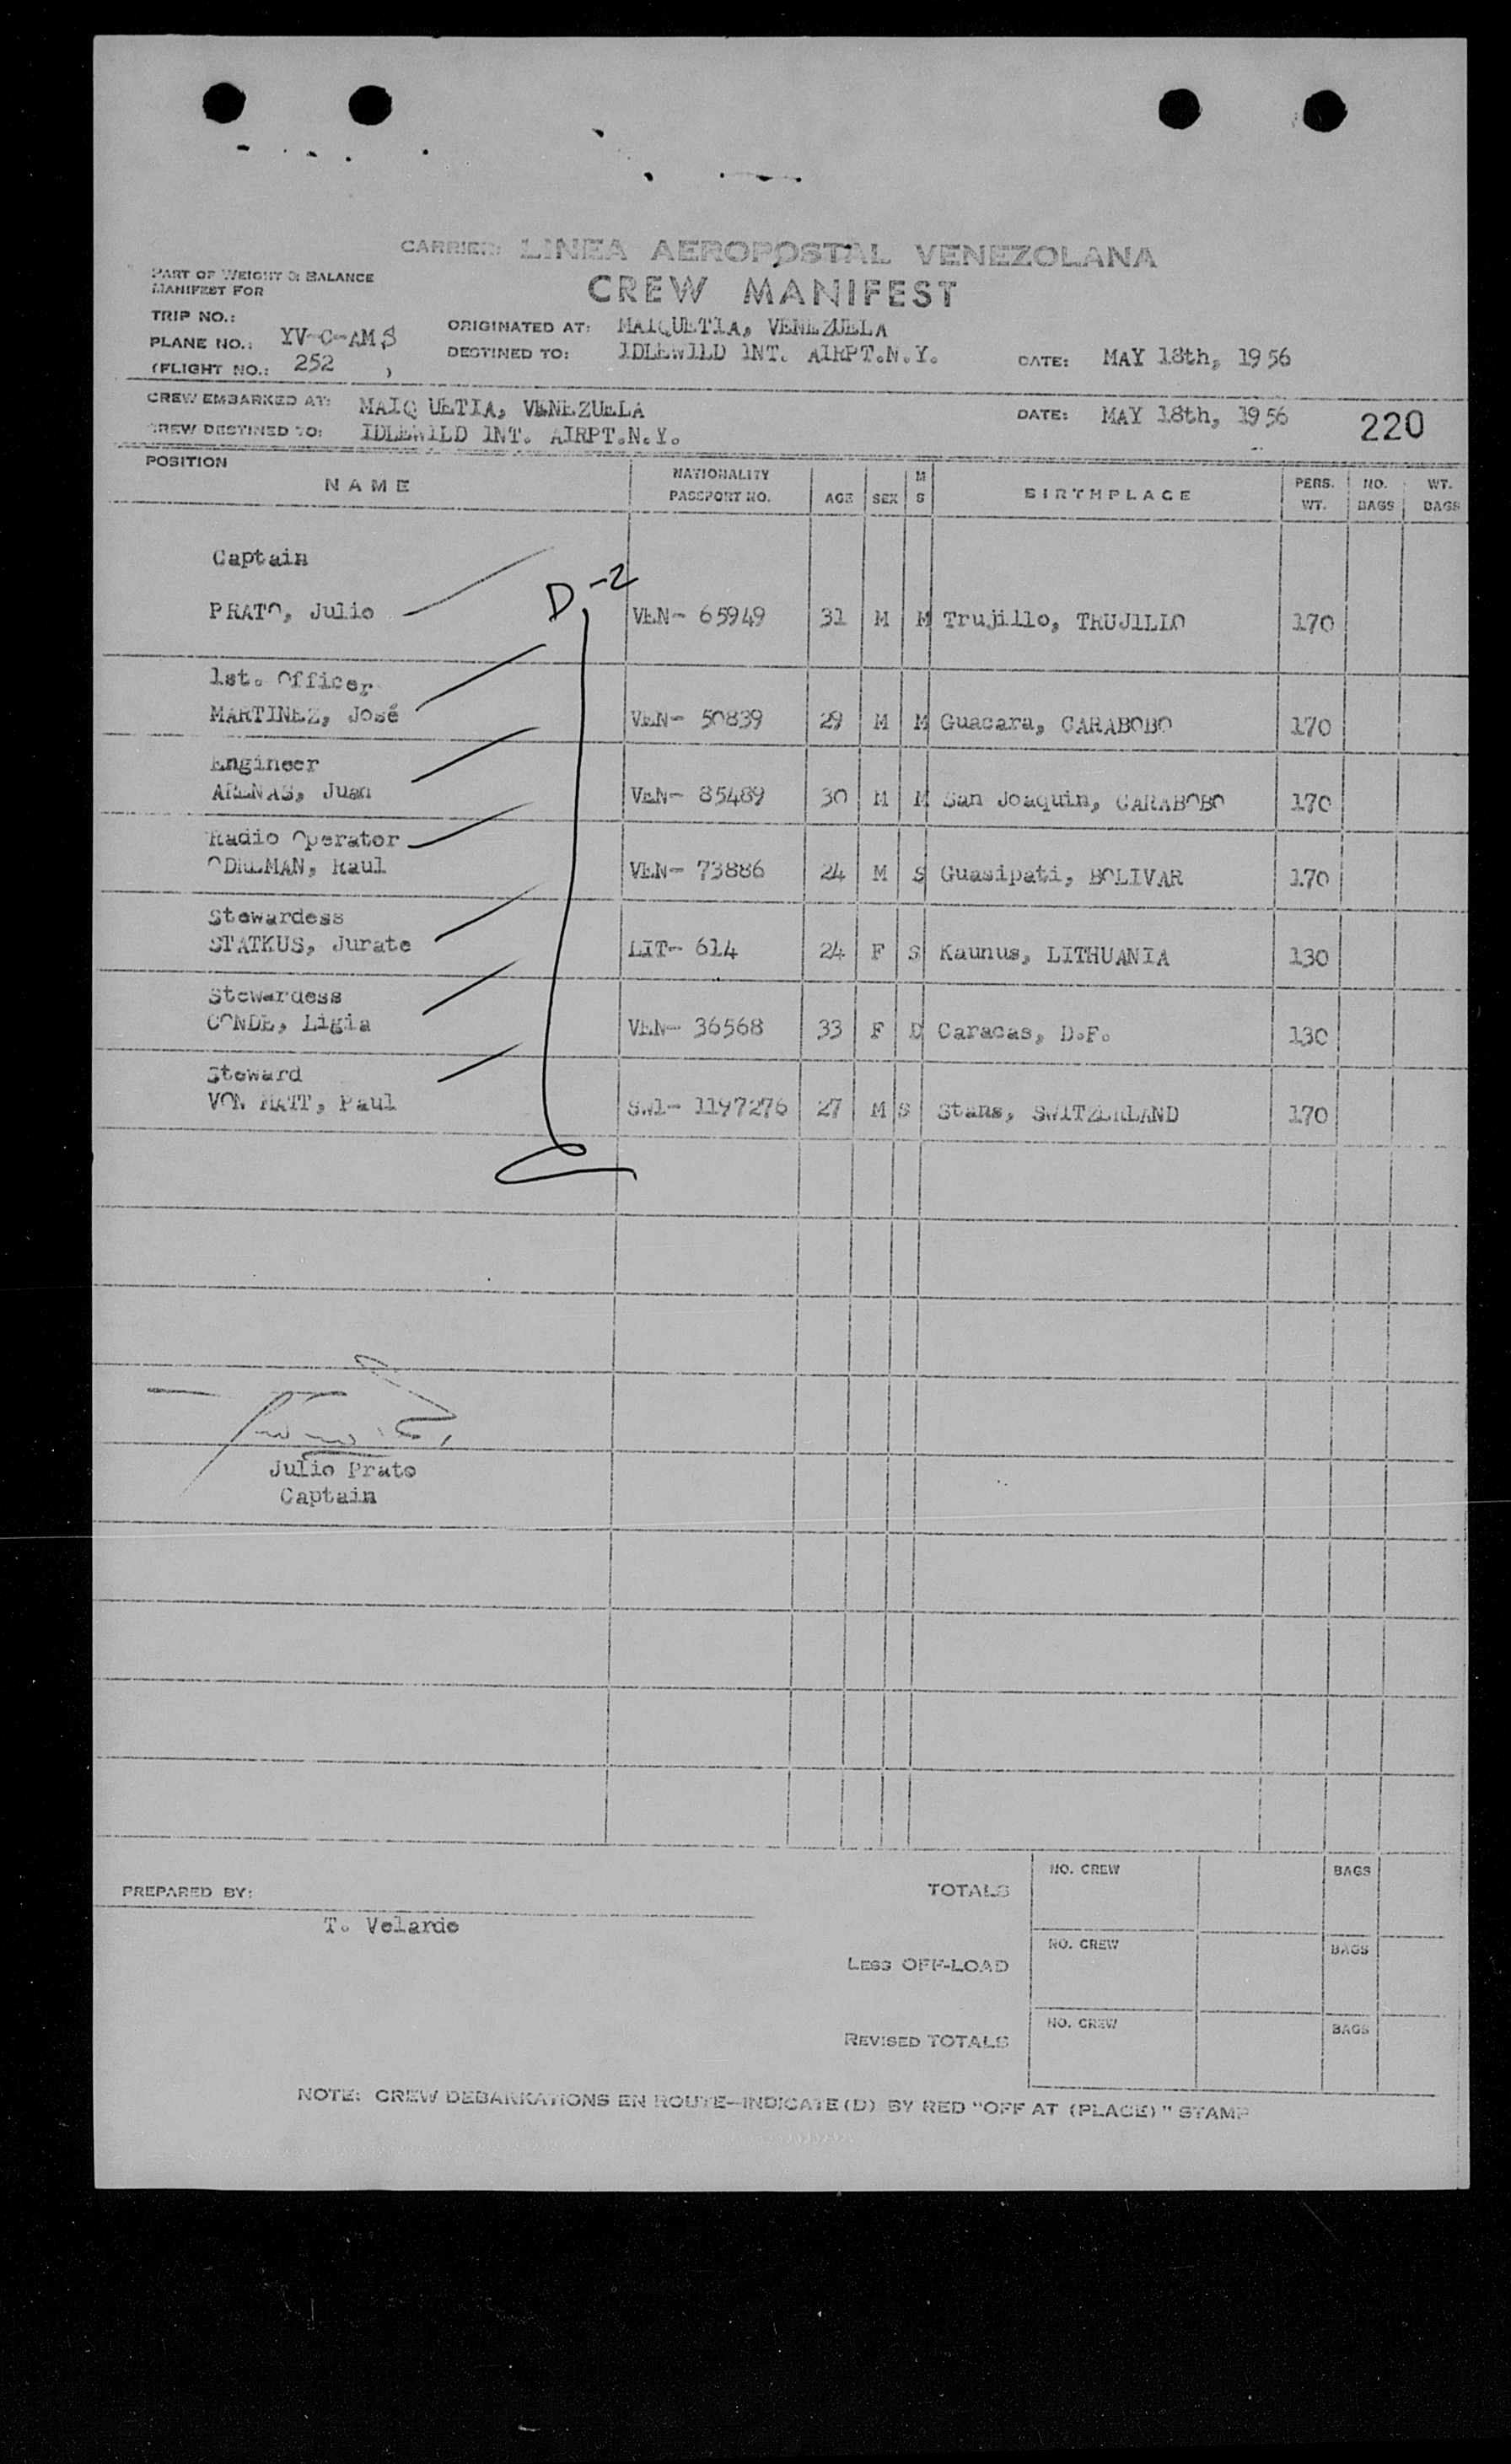 CARRIER: LINEA AEROPOSTAL VENEZOLANA
PART OF WEIGHT & BALANCE
MANIFEST FOR
CREW MANIFEST
TRIP NO.:
PLANE NO.: YV-C-AMS
(FLIGHT NO.: 252 )
ORIGINATED AT: MAIQUETIA, VENEZUELA
DESTINED TO: IDLEWILD INT. AIRPT.N.Y. DATE: MAY 18th, 1956
CREW EMBARKED AT: MAIQ UETIA, VENEZUELA DATE: MAY 18th, 1956 220
CREW DESTINED TO: IDLEWILD INT. AIRPT.N.Y.
POSITION
NAME NATIONALITY PASSPORT NO. AGE SEX M S BIRTHPLACE PERS. WT. NO. BAGS WT. BAGS
Captain
D-2
PRATO, Julio VEN- 65949 31 M M Trujillo, TRUJILLO 170
1st. Officer
MARTINEZ, José VEN- 50839 29 M M Guacara, CARABOBO 170
Engineer
ARENAS, Juan VEN- 85489 30 M M San Joaquin, CARABOBO 170
Radio Operator
ODREMAN, Raul VEN- 73886 24 M S Guasipati, BOLIVAR 170
Stewardess
STATKUS, Jurate LIT- 614 24 F S Kaunus, LITHUANIA 130
Stewardess
CONDE, Ligia VEN- 36568 33 F D Caracas, D.F. 130
Steward
VON MATT, Paul SWI- 1197276 27 M S Stans, SWITZERLAND 170
Julio Prato
Captain
PREPARED BY:
T. Velarde
TOTALS NO. CREW BAGS
LESS OFF-LOAD NO. CREW BAGS
REVISED TOTALS NO. CREW BAGS
NOTE: CREW DEBARKATIONS EN ROUTE—INDICATE (D) BY RED "OFF AT (PLACE)" STAMP